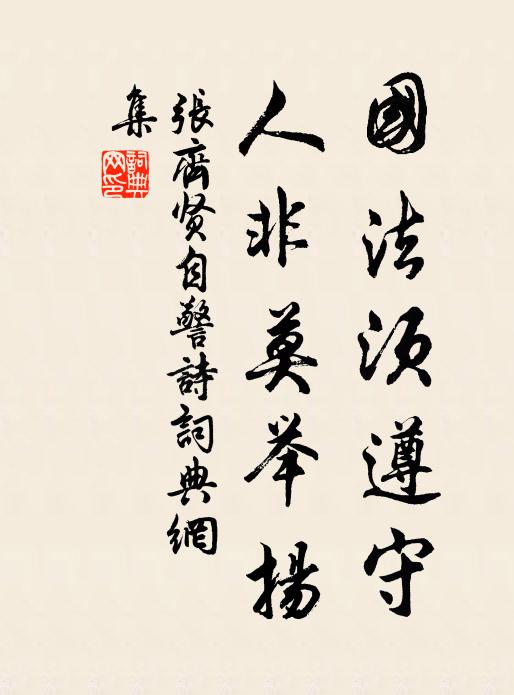 國法須遵守
人非莫举揚
張齊贤自警詩詞典網
集
詞典
网印